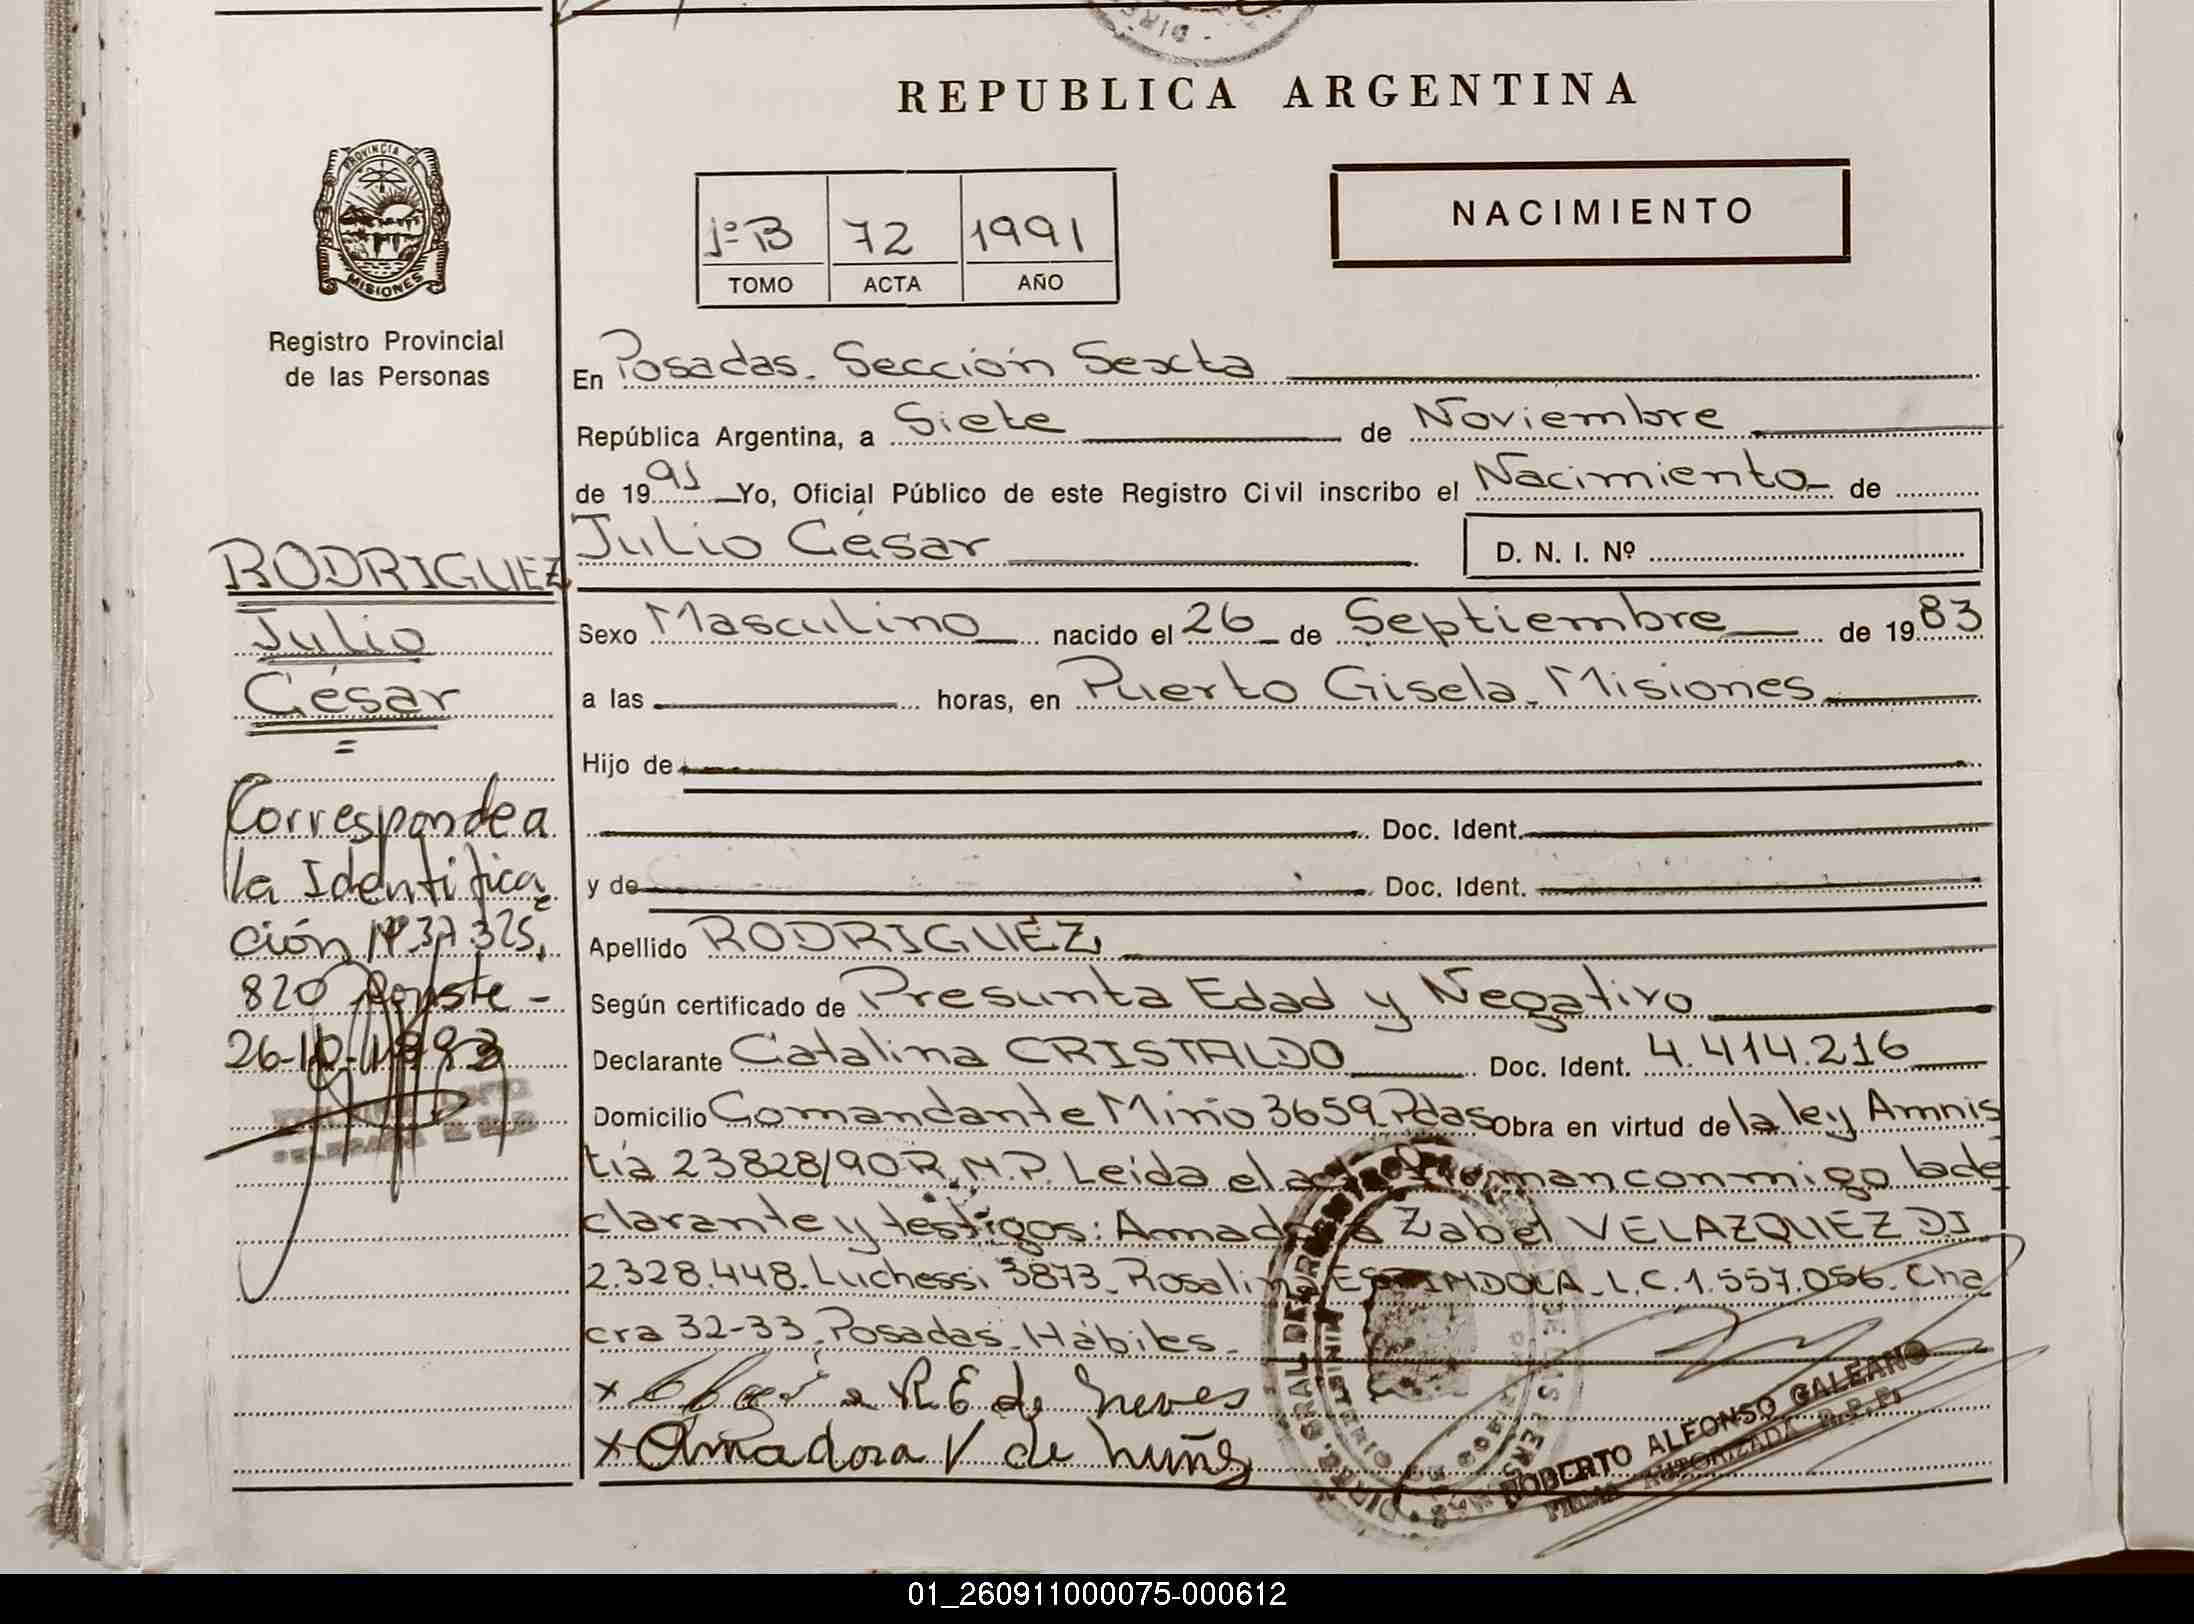 REPUBLICA ARGENTINA
PROVINCIA DE
MISIONES
Registro Provincial
de las Personas
1º B 72 1991
TOMO ACTA AÑO
NACIMIENTO
En Posadas. Sección Sexta
República Argentina, a Siete de Noviembre
de 1991 Yo, Oficial Público de este Registro Civil inscribo el Nacimiento de
Julio César D. N. I. Nº
Sexo Masculino nacido el 26 de Septiembre de 1983
a las horas, en Puerto Gisela. Misiones
Hijo de
Doc. Ident.
y de Doc. Ident.
Apellido RODRIGUEZ
Según certificado de Presunta Edad y Negativo
Declarante Catalina CRISTALDO Doc. Ident. 4.414.216
Domicilio Comandante Miño 3659 Pdas Obra en virtud de la ley Amnis
tía 23828/90 R.N.P. Leída el acta firman conmigo la de
clarante y testigos: Amadora Zabel VELAZQUEZ DI
2.328.448. Luchessi 3873. Rosalina ESPINDOLA. L.C. 1.557.056. Cha
cra 32-33. Posadas. Hábiles.
x R E de neves
x Amadora V de nuñez
ROBERTO ALFONSO GALEANO
FIRMA AUTORIZADA R.P.P.
RODRIGUEZ
Julio
César
=
Corresponde a
la Identifica
ción Nº 37.325.
820 Conste -
26-10-1993
01_260911000075-000612